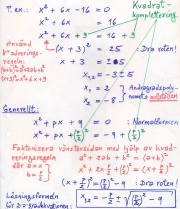 T.ex.: x² + 6x - 16 = 0
Kvadrat-
komplettering
x² + 6x = 16
Använd
kvadrerings-
regeln
(x + 3)² = 25 : Dra roten!
(a+b)² = a² + 2ab + b²
x + 3 = ±5
x₁,₂ = -3 ± 5
x₁ = 2
x₂ = -8
Andragradspoly-
nomets nollställen
Generellt:
x² + px + q = 0 : Normalformen
x² + px + (p/2)² = (p/2)² - q
Faktorisera vänstersidan med hjälp av kvad-
reringsregeln där
a² + 2ab + b² = (a+b)²
x² + px + (p/2)² = (x + p/2)²
(x + p/2)² = (p/2)² - q : Dra roten!
Lösningsformeln
för 2:a-gradsekvationen
x₁,₂ = -p/2 ± √(p/2)² - q